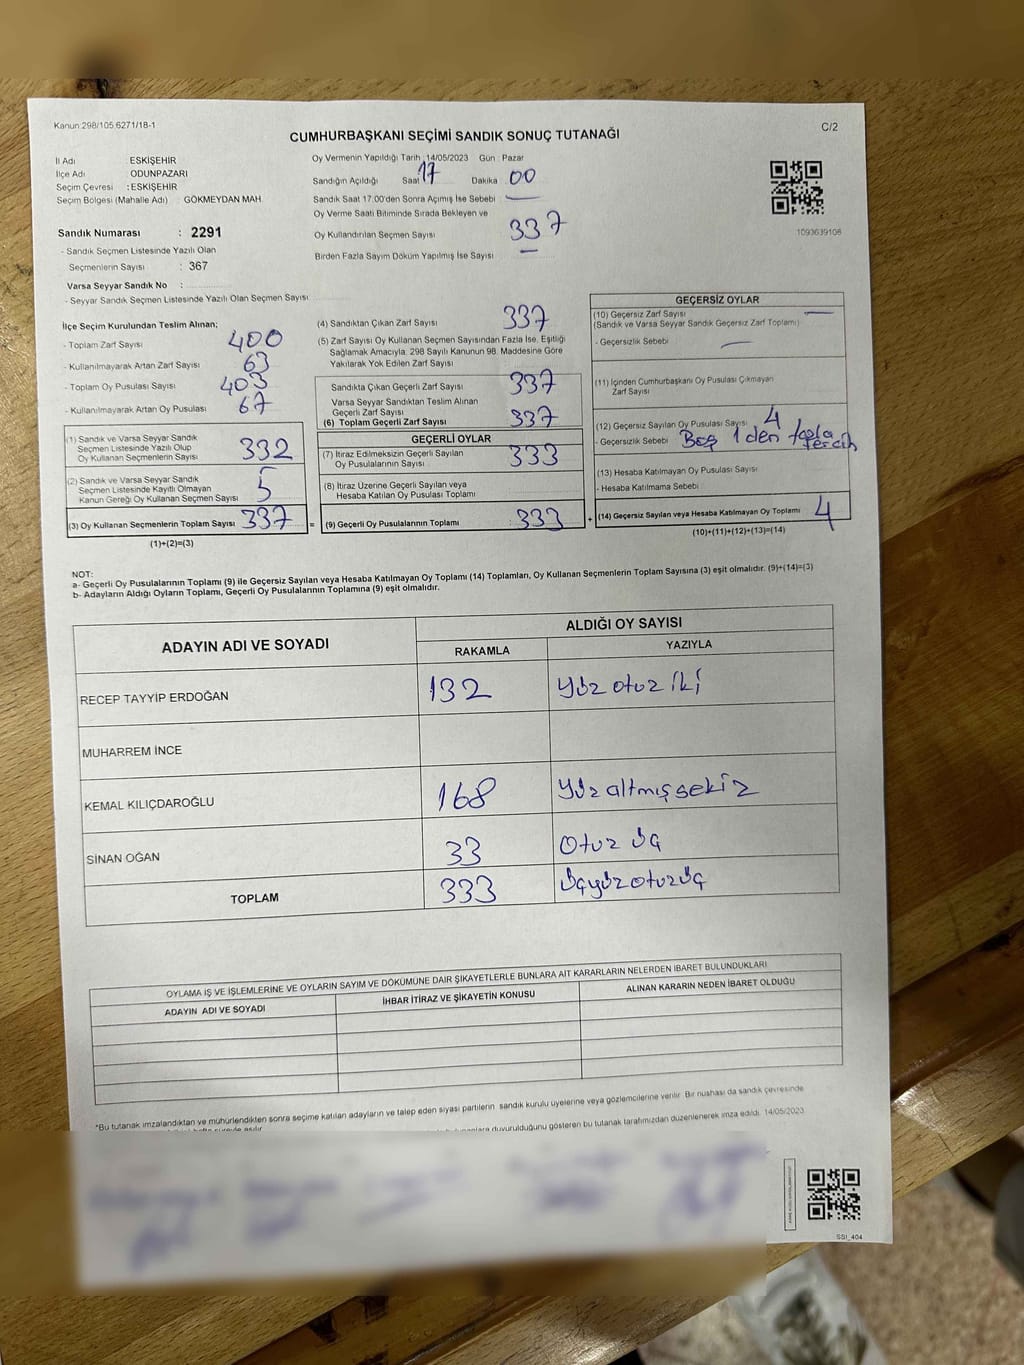 Kanun:298/105 6271/18-1
C/2
CUMHURBAŞKANI SEÇİMİ SANDIK SONUÇ TUTANAĞI
İl Adı : ESKİŞEHİR
İlçe Adı : ODUNPAZARI
Seçim Çevresi : ESKİŞEHİR
Seçim Bölgesi (Mahalle Adı) : GÖKMEYDAN MAH.
Oy Vermenin Yapıldığı Tarih :14/05/2023 Gün : Pazar
Sandığın Açıldığı Saat 17 Dakika 00
Sandık Saat 17.00'den Sonra Açılmış İse Sebebi —
Oy Verme Saati Bitiminde Sırada Bekleyen ve
Oy Kullandırılan Seçmen Sayısı 337
Birden Fazla Sayım Döküm Yapılmış İse Sayısı —
1093639108
Sandık Numarası : 2291
- Sandık Seçmen Listesinde Yazılı Olan
Seçmenlerin Sayısı : 367
Varsa Seyyar Sandık No :
- Seyyar Sandık Seçmen Listesinde Yazılı Olan Seçmen Sayısı
İlçe Seçim Kurulundan Teslim Alınan;
- Toplam Zarf Sayısı 400
- Kullanılmayarak Artan Zarf Sayısı 63
- Toplam Oy Pusulası Sayısı 403
- Kullanılmayarak Artan Oy Pusulası 67
(1) Sandık ve Varsa Seyyar Sandık
Seçmen Listesinde Yazılı Olup
Oy Kullanan Seçmenlerin Sayısı 332
(2) Sandık ve Varsa Seyyar Sandık
Seçmen Listesinde Kayıtlı Olmayan
Kanun Gereği Oy Kullanan Seçmen Sayısı 5
(3) Oy Kullanan Seçmenlerin Toplam Sayısı 337 =
(1)+(2)=(3)
(4) Sandıktan Çıkan Zarf Sayısı 337
(5) Zarf Sayısı Oy Kullanan Seçmen Sayısından Fazla İse, Eşitliği
Sağlamak Amacıyla, 298 Sayılı Kanunun 98. Maddesine Göre
Yakılarak Yok Edilen Zarf Sayısı
Sandıkta Çıkan Geçerli Zarf Sayısı 337
Varsa Seyyar Sandıktan Teslim Alınan
Geçerli Zarf Sayısı
(6) Toplam Geçerli Zarf Sayısı 337
GEÇERLİ OYLAR
(7) İtiraz Edilmeksizin Geçerli Sayılan
Oy Pusulalarının Sayısı 333
(8) İtiraz Üzerine Geçerli Sayılan veya
Hesaba Katılan Oy Pusulası Toplamı
(9) Geçerli Oy Pusulalarının Toplamı : 333 +
GEÇERSİZ OYLAR
(10) Geçersiz Zarf Sayısı —
(Sandık ve Varsa Seyyar Sandık Geçersiz Zarf Toplamı)
- Geçersizlik Sebebi —
(11) İçinden Cumhurbaşkanı Oy Pusulası Çıkmayan
Zarf Sayısı
(12) Geçersiz Sayılan Oy Pusulası Sayısı 4
- Geçersizlik Sebebi Boş 1 den fazla
tercih
(13) Hesaba Katılmayan Oy Pusulası Sayısı
- Hesaba Katılmama Sebebi
(14) Geçersiz Sayılan veya Hesaba Katılmayan Oy Toplamı 4
(10)+(11)+(12)+(13)=(14)
NOT:
a- Geçerli Oy Pusulalarının Toplamı (9) ile Geçersiz Sayılan veya Hesaba Katılmayan Oy Toplamı (14) Toplamları, Oy Kullanan Seçmenlerin Toplam Sayısına (3) eşit olmalıdır. (9)+(14)=(3)
b- Adayların Aldığı Oyların Toplamı, Geçerli Oy Pusulalarının Toplamına (9) eşit olmalıdır.
ADAYIN ADI VE SOYADI
ALDIĞI OY SAYISI
RAKAMLA YAZIYLA
RECEP TAYYİP ERDOĞAN 132 Yüz otuz iki
MUHARREM İNCE
KEMAL KILIÇDAROĞLU 168 Yüz altmış sekiz
SİNAN OĞAN 33 Otuz üç
TOPLAM 333 Üçyüzotuzüç
OYLAMA İŞ VE İŞLEMLERİNE VE OYLARIN SAYIM VE DÖKÜMÜNE DAİR ŞİKAYETLERLE BUNLARA AİT KARARLARIN NELERDEN İBARET BULUNDUKLARI
ADAYIN ADI VE SOYADI İHBAR İTİRAZ VE ŞİKAYETİN KONUSU ALINAN KARARIN NEDEN İBARET OLDUĞU
*Bu tutanak imzalandıktan ve mühürlendikten sonra seçime katılan adayların ve talep eden siyasi partilerin sandık kurulu üyelerine veya gözlemcilerine verilir. Bir nushası da sandık çevresinde
duyurulduğunu gösteren bu tutanak tarafımızdan düzenlenerek imza edildi. 14/05/2023
SSİ_404